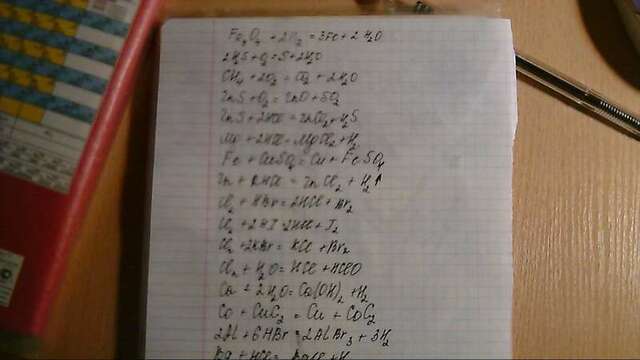 Fe3O4 + 2H2 = 3Fe + 2H2O
2H2S + O2 = S + 2H2O
CH4 + 2O2 = CO2 + 2H2O
ZnS + O2 = ZnO + SO2
ZnS + 2HCl = ZnCl2 + H2S
Mg + 2HCl = MgCl2 + H2
Fe + CuSO4 = Cu + FeSO4
Zn + 2HCl = ZnCl2 + H2↑
Cl2 + HBr = 2HCl + Br2
Cl2 + 2HI = 2HCl + I2
Cl2 + 2KBr = KCl + Br2
Cl2 + H2O = HCl + HClO
Ca + 2H2O = Ca(OH)2 + H2
Co + CuCl2 = Cu + CoCl2
2Al + 6HBr = 2AlBr3 + 3H2